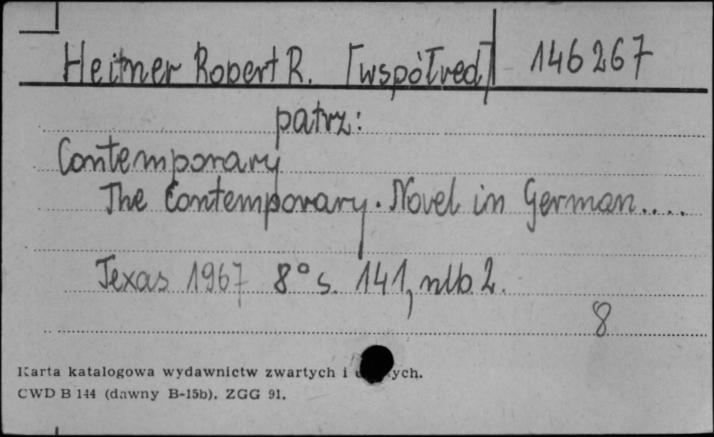 Heitner Robert R. [współred] 146267
patrz:
Contemporary
The Contemporary. Novel in German....
Texas 1967 8° s. 141, nlb 2.
8
Karta katalogowa wydawnictw zwartych i
CWD B 144 (dawny B-15b). ZGG 91.